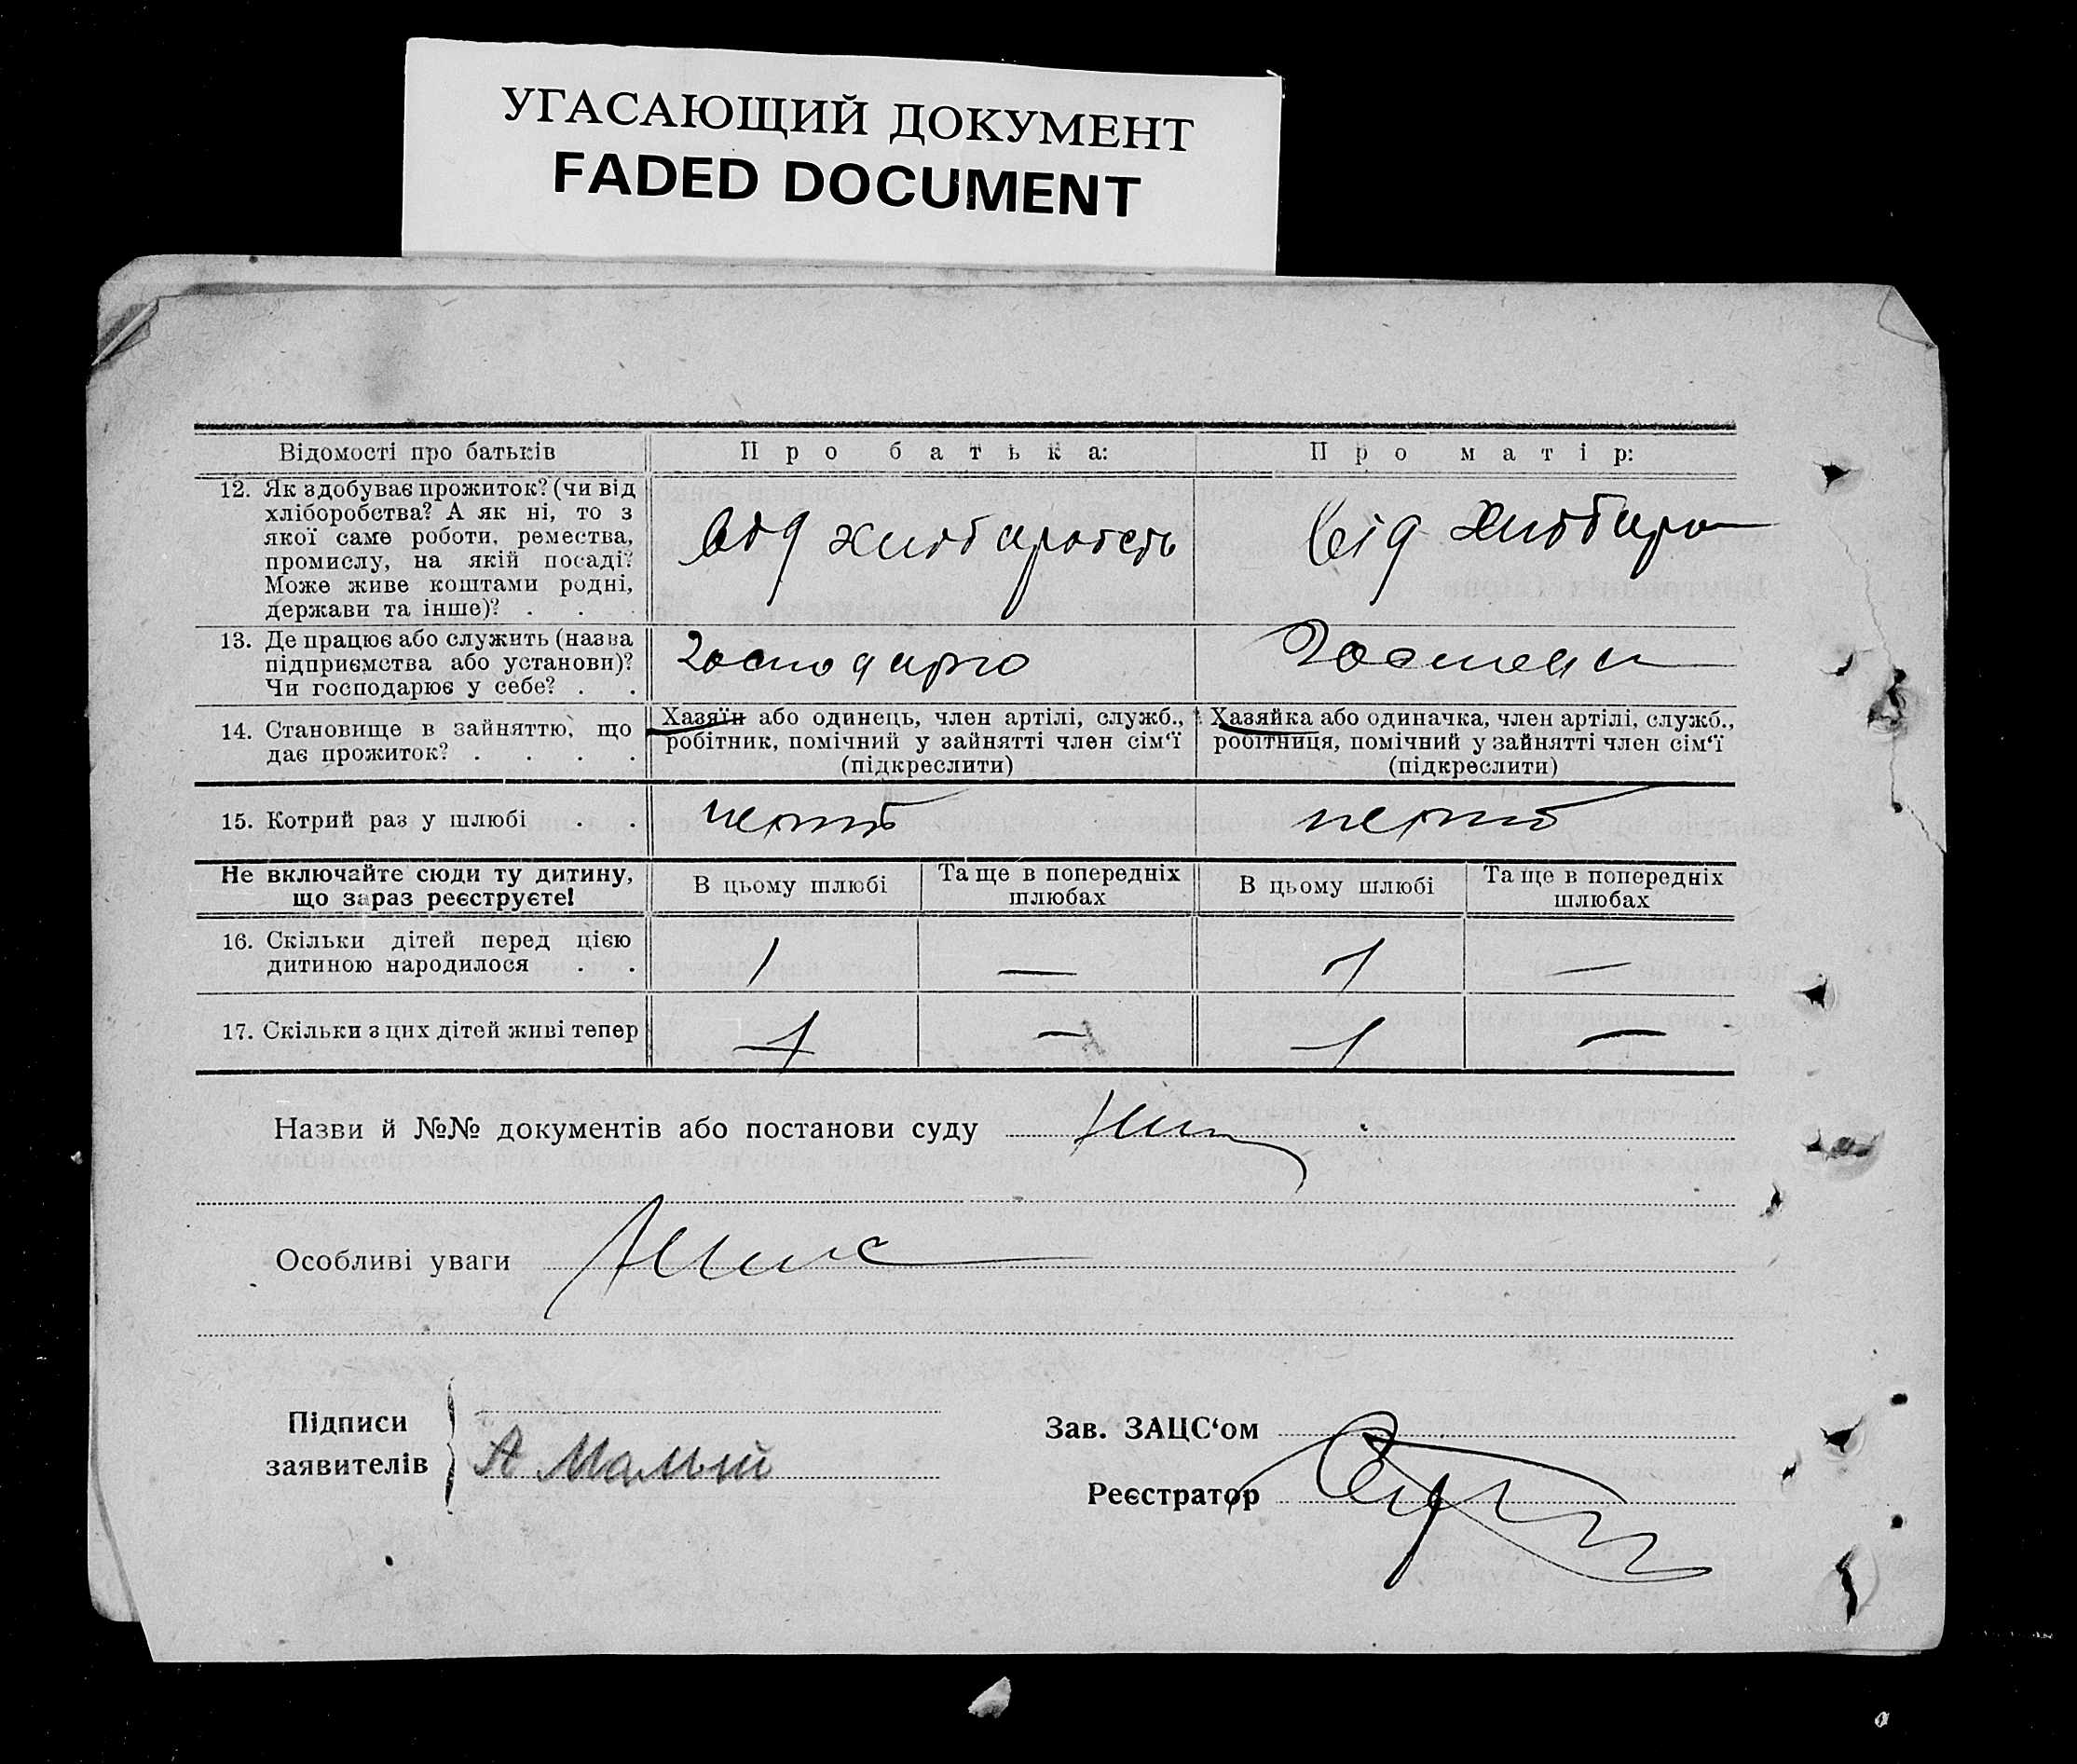 УГАСАЮЩИЙ ДОКУМЕНТ
FADED DOCUMENT
Відомості про батьків
Про батька:
Про матір:
12. Як здобуває прожиток? (чи від
хліборобства? А як ні, то з
якої саме роботи, ремества,
промислу, на якій посаді?
Може живе коштами родні,
держави та інше)? . .
від
від
13. Де працює або служить (назва
підприємства або установи)?
Чи господарює у себе? . .
господарю
14. Становище в зайняттю, що
дає прожиток? . . . .
Хазяїн або одинець, член артілі, служб.,
робітник, помічний у зайнятті член сім‘ї
(підкреслити)
Хазяйка або одиначка, член артілі, служб.,
робітниця, помічний у зайнятті член сім‘ї
(підкреслити)
15. Котрий раз у шлюбі . .
Не включайте сюди ту дитину,
що зараз реєструєте!
В цьому шлюбі
Та ще в попередніх
шлюбах
В цьому шлюбі
Та ще в попередніх
шлюбах
16. Скільки дітей перед цією
дитиною народилося . .
1 — 1 —
17. Скільки з цих дітей живі тепер
1 — 1 —
Назви й №№ документів або постанови суду
Особливі уваги
Підписи
заявителів
А Малий
Зав. ЗАЦС‘ом
Реєстратор